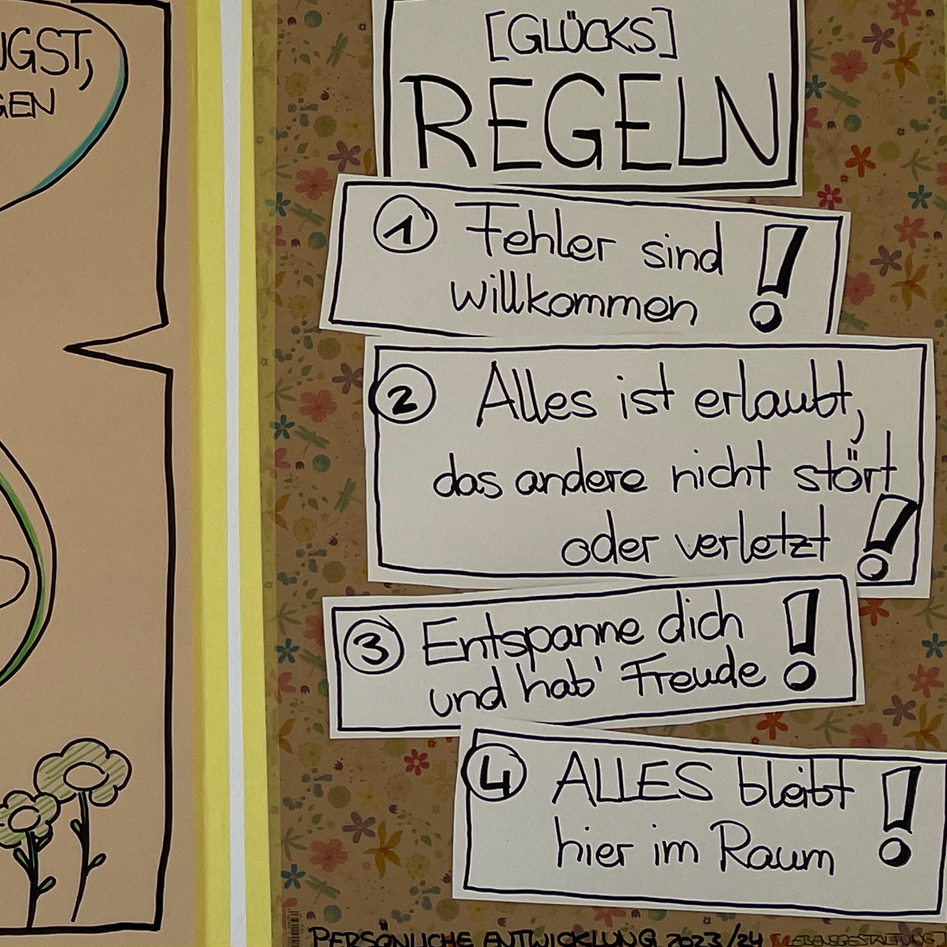 [GLÜCKS]
REGELN
1 Fehler sind
willkommen!
2 Alles ist erlaubt,
das andere nicht stört
oder verletzt!
3 Entspanne dich
und hab' Freude!
4 ALLES bleibt
hier im Raum!
PERSÖNLICHE ENTWICKLUNG 2023/24